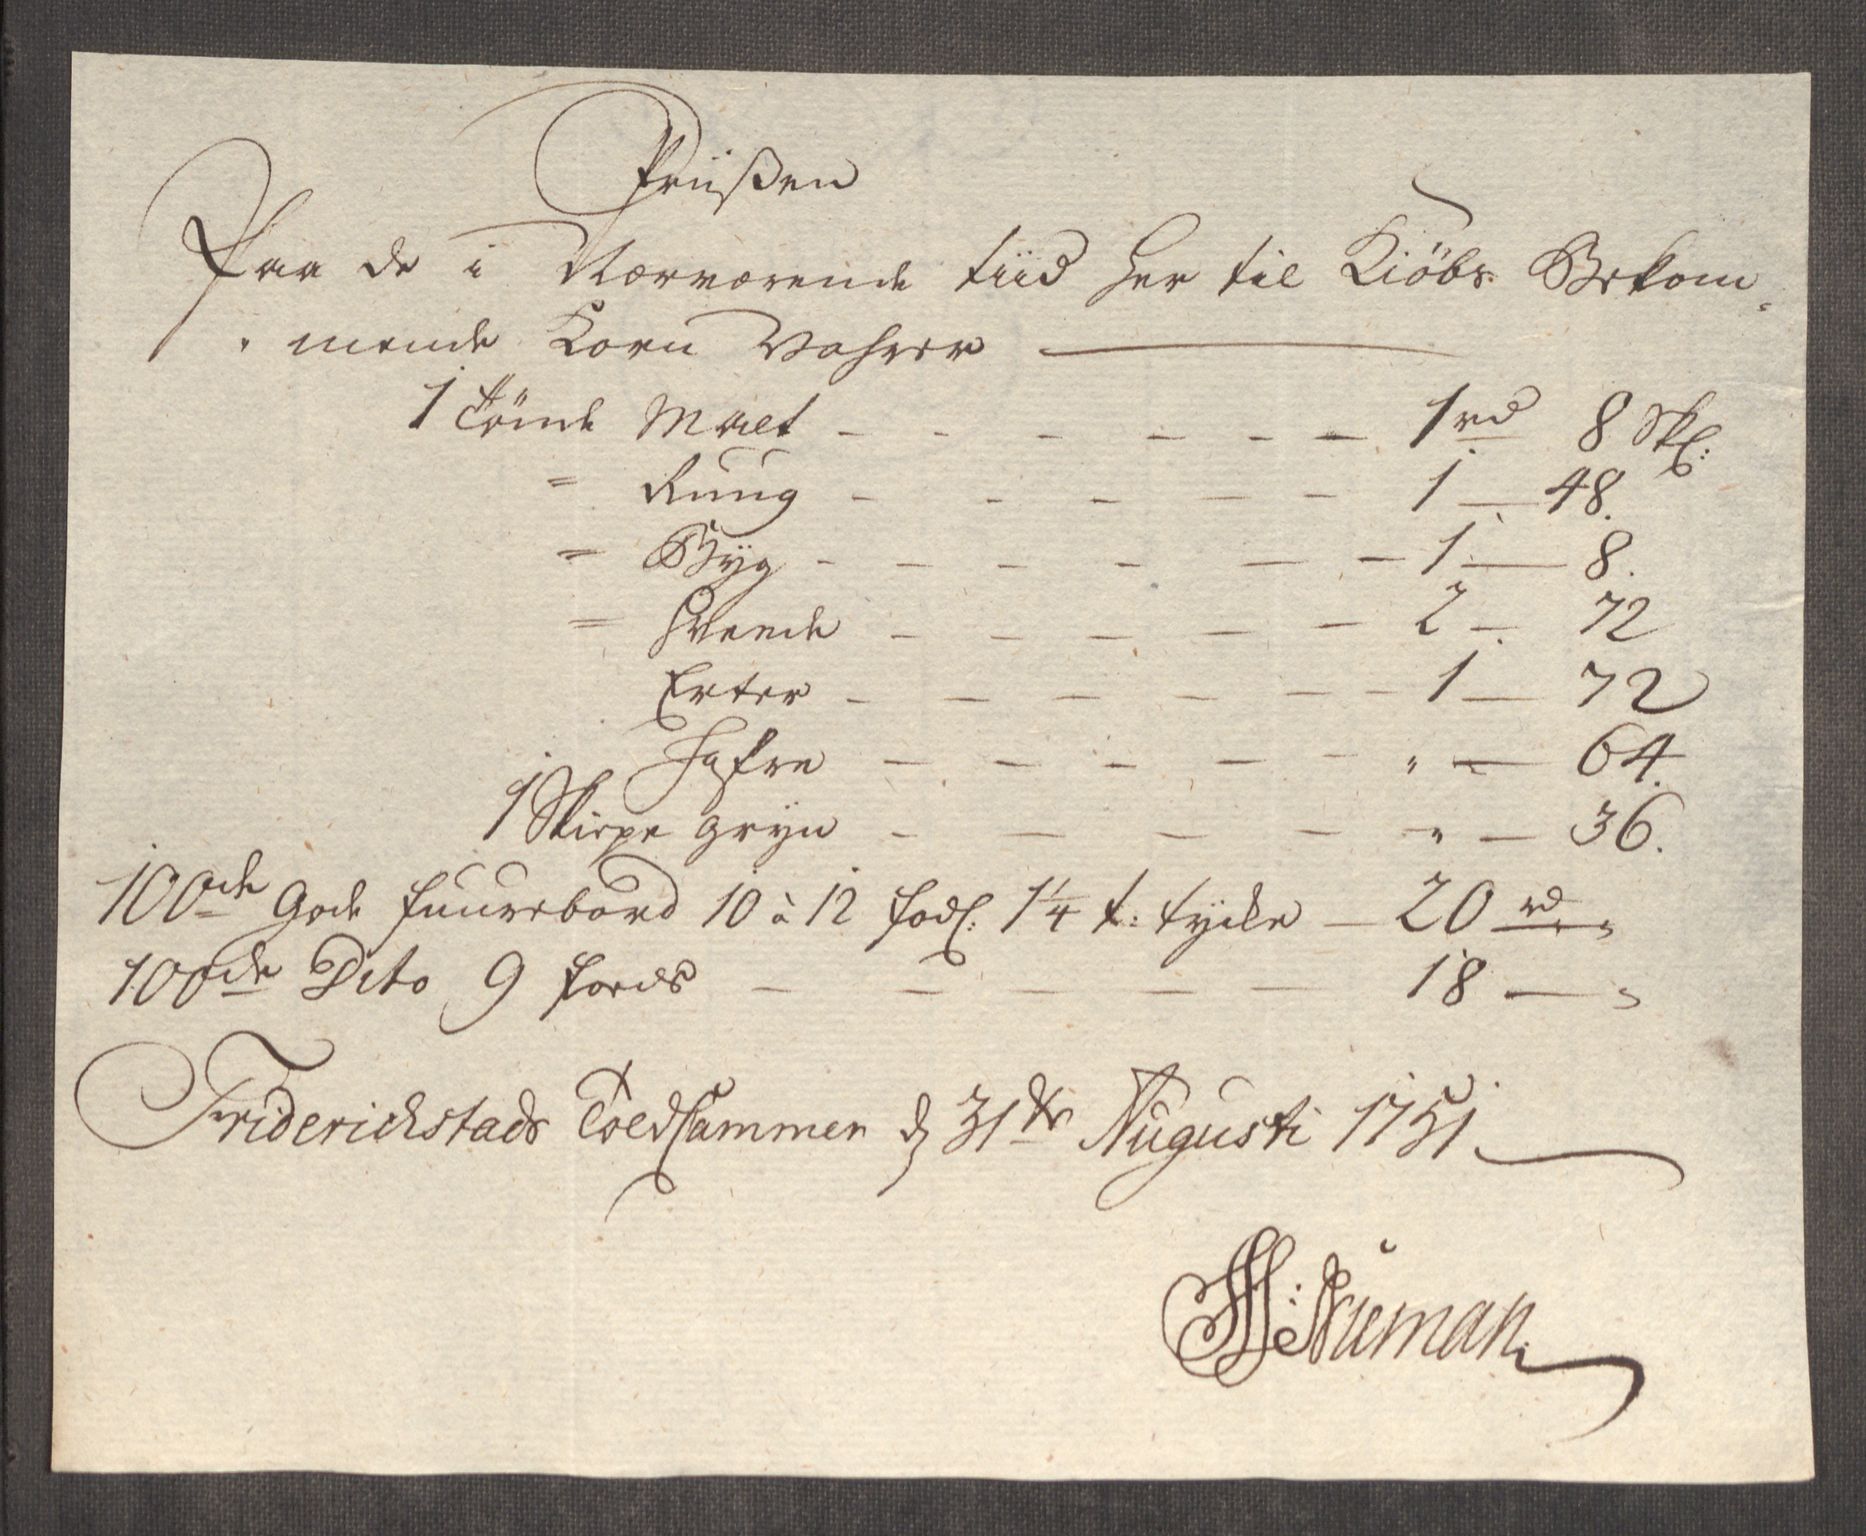 Priißen
Paa de i Nærværende tiid her til Kiöbs Bekom-
mende Korn Vahrer
1 Tönde Malt - - - - - - 1 rd 8 Skl:
= Ruug - - - - - 1 — 48.
= Byg - - - - - - 1 — 8.
= Hvede - - - - - 2 — 72
Erter - - - - - - 1 — 72
Hafre - - - - - " — 64.
1 Skieppe gryn - - - - - " — 36.
100de Gode fuurebord 10 à 12 fods: 1¼ t: tycke — 20 rd "
100de Dito 9 foeds - - - - - 18 — "
Friderichstads Toldkammer d 31te Augusti 1751
Nüman